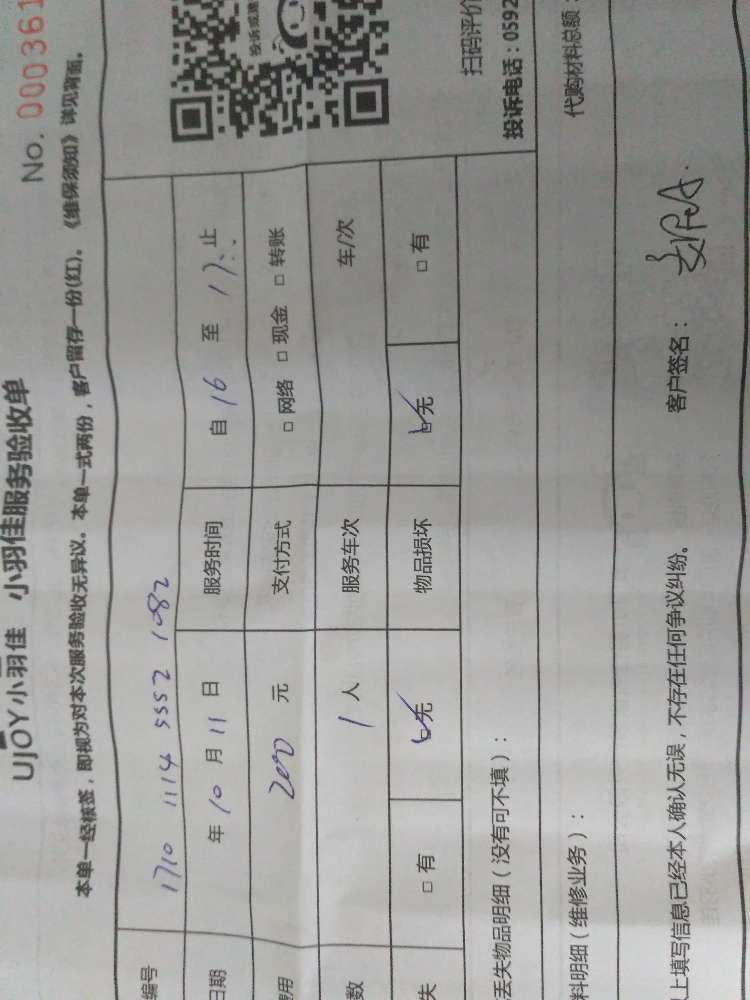 UJOY小羽佳 小羽佳服务验收单 No. 000361
本单一经核签，即视为对本次服务验收无异议。本单一式两份，客户留存一份(红)。《维保须知》详见背面。
编号 1710 1114 5552 1082
日期 年 10 月 11 日 服务时间 自 16 至 17 止
费用 200 元 支付方式 □ 网络 □ 现金 □ 转账
数 1 人 服务车次 车/次
失 □ 有 □ 无 物品损坏 □ 无 □ 有
扫码评价
丢失物品明细（没有可不填）：
投诉电话：0592
料明细（维修业务）：
代购材料总额：
上填写信息已经本人确认无误，不存在任何争议纠纷。 客户签名：